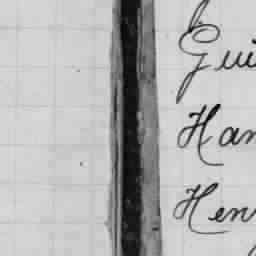 Gui
Han
Hen